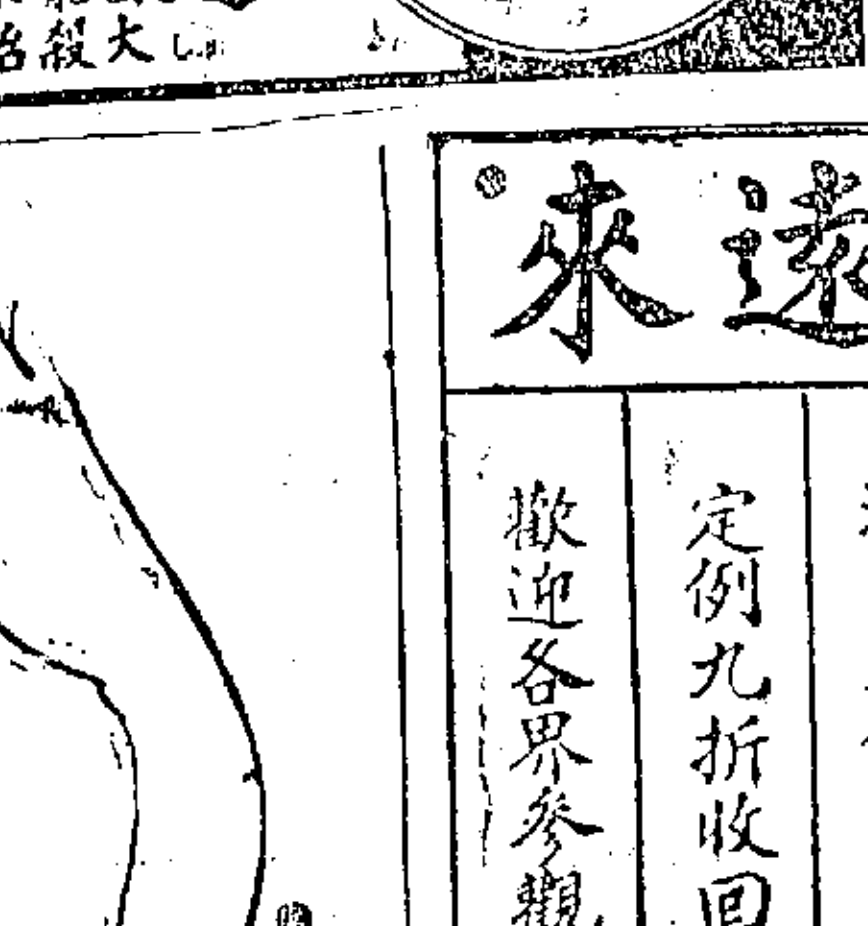 大殺
遠來
定例九折收回
歡迎各界參觀